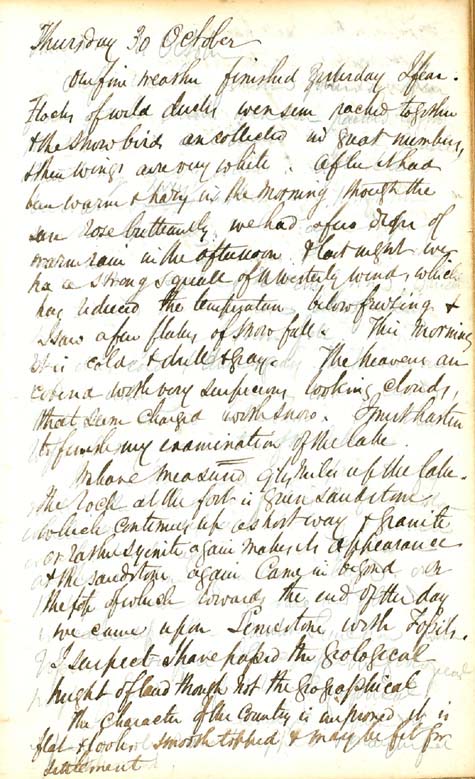 Thursday 30 October
Our fine weather finished yesterday I fear.
Flocks of wild ducks were seen packed together
& the snow birds are collected in great numbers,
& their wings are very white. After it had
been warm & hazy in the morning though the
sun rose brilliantly we had a few drops of
warm rain in the afternoon & last night we
had a strong squall of N Westerly wind, which
has reduced the temperature below freezing &
I saw a few flakes of snow fall. This morning
it is cold & dull & gray. The heavens are
covered with very suspicious looking clouds,
that seem charged with snow. I must hasten
to finish my examination of the lake.
We have measured miles up the lake.
The rock at the fort is green sandstone
which continues up a short way & granite
or rather syenite again makes its appearance
& the sandstone again came in beyond on
the top of which towards the end of the day
we came upon Limestone with Fossils.
I suspect I have passed the geological
height of land though not the geographical
The character of the country is improved it is
flat & looks smooth topped & may be fit for
settlement